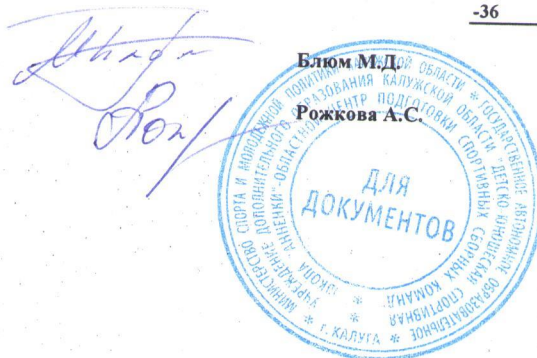 -36
Блюм М.Д.
Рожкова А.С.
МИНИСТЕРСТВО СПОРТА И МОЛОДЕЖНОЙ ПОЛИТИКИ КАЛУЖСКОЙ ОБЛАСТИ * ГОСУДАРСТВЕННОЕ АВТОНОМНОЕ ОБРАЗОВАТЕЛЬНОЕ
УЧРЕЖДЕНИЕ ДОПОЛНИТЕЛЬНОГО ОБРАЗОВАНИЯ КАЛУЖСКОЙ ОБЛАСТИ "ДЕТСКО ЮНОШЕСКАЯ СПОРТИВНАЯ
ШКОЛА "АННЕНКИ"-ОБЛАСТНОЙ ЦЕНТР ПОДГОТОВКИ СПОРТИВНЫХ СБОРНЫХ КОМАНД
* г. КАЛУГА *
ДЛЯ
ДОКУМЕНТОВ